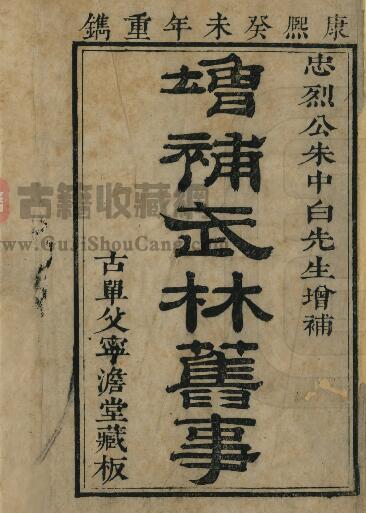 康熙癸未年重鐫
忠烈公朱中白先生增補
增補武林舊事
古單父寧澹堂藏板
古籍收藏網
www.GuJiShouCang.com